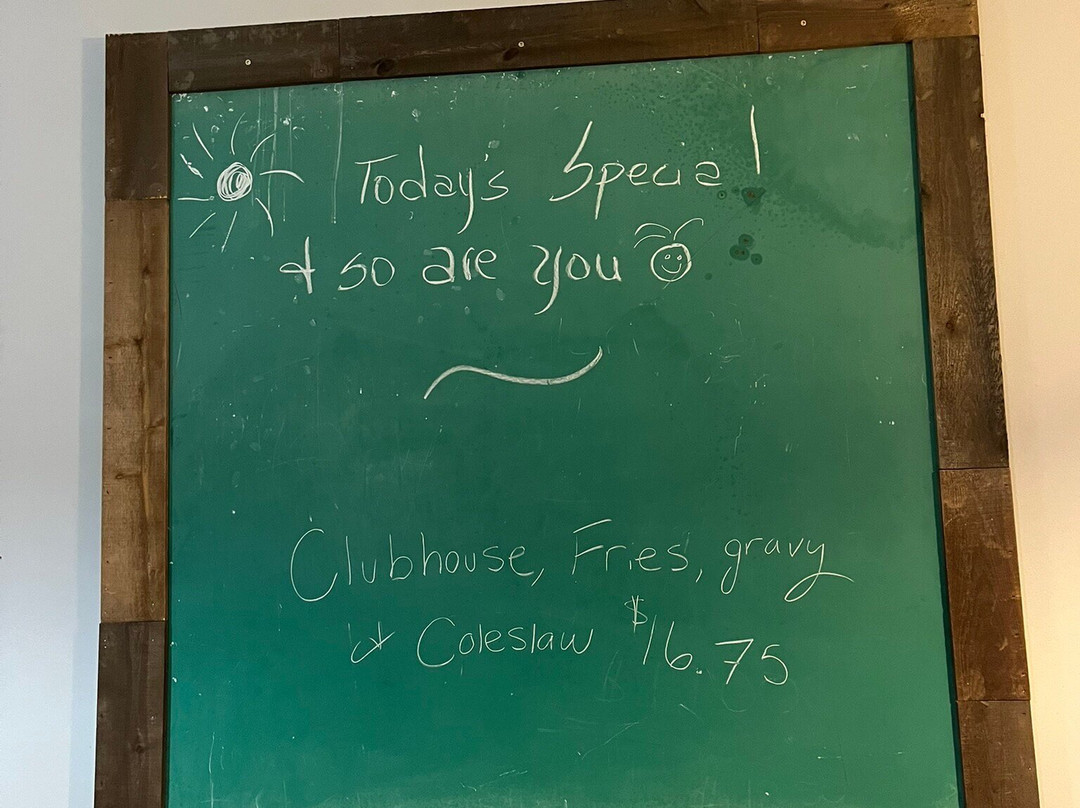 Today's Special
& so are you
Clubhouse, Fries, gravy
& Coleslaw $16.75